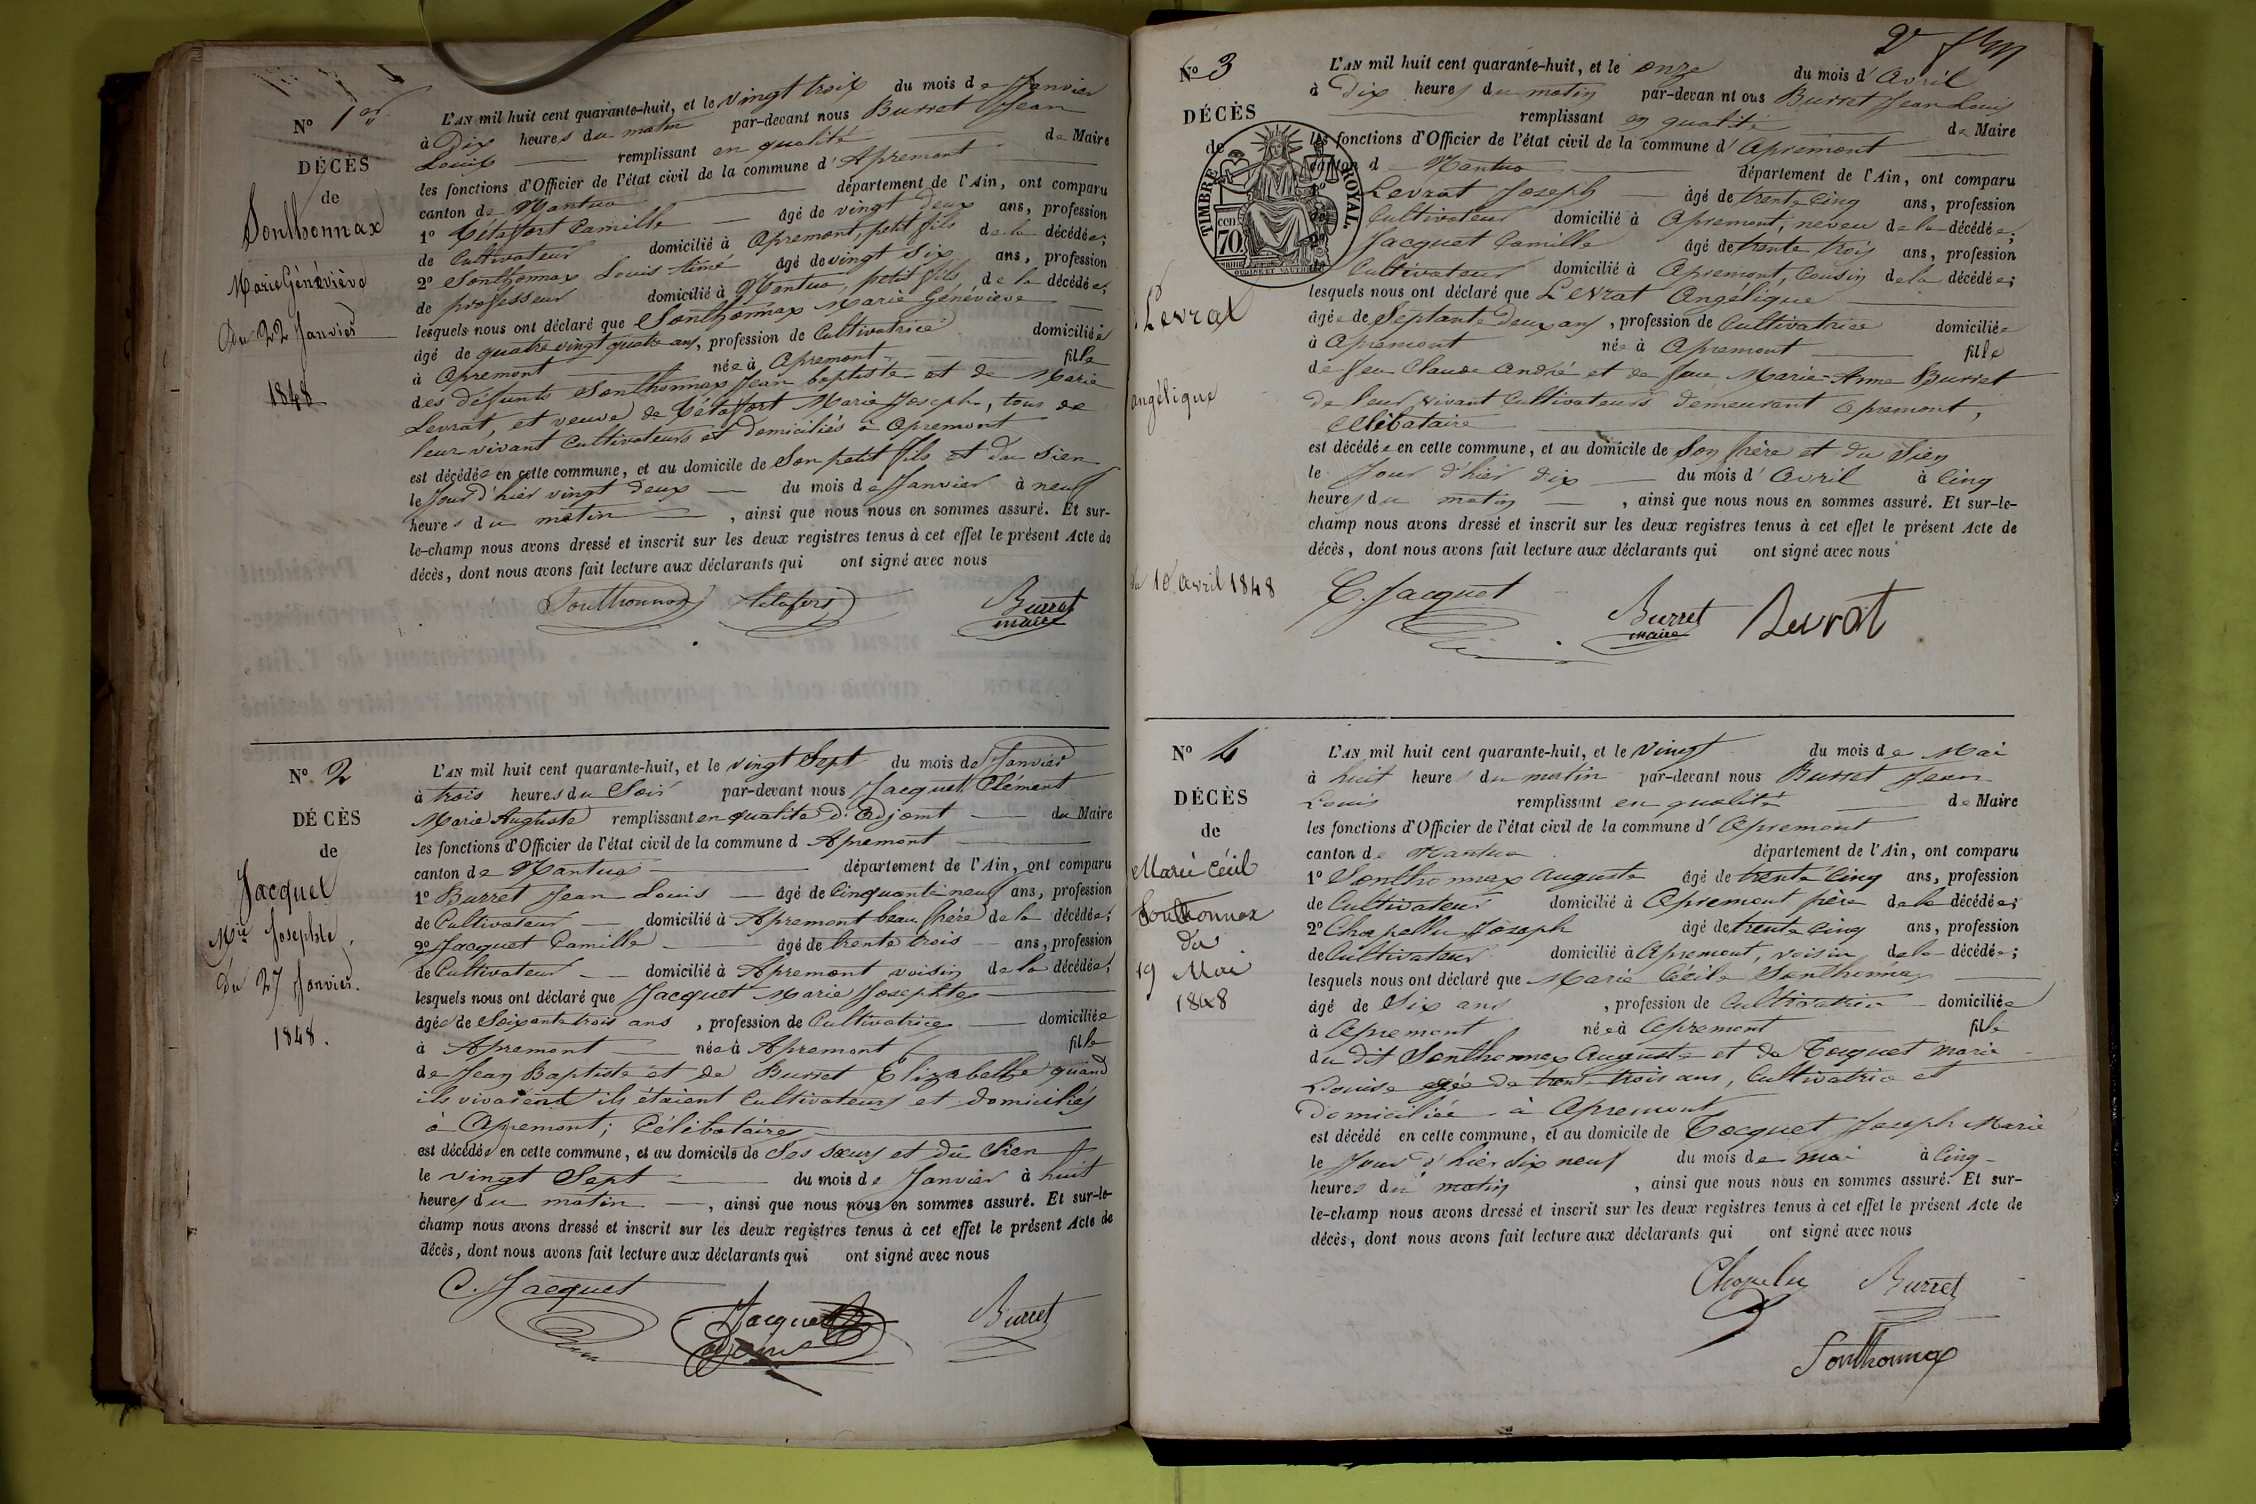 N° 1er
DÉCÈS
de
Sonthonnax
Marie Généviève
Du 22 Janvier
1848
L'AN mil huit cent quarante-huit, et le vingt trois du mois de Janvier
à Dix heures du matin par-devant nous Burret Jean
Louis remplissant en qualité de Maire
les fonctions d'Officier de l'état civil de la commune d'Apremont
canton de Nantua département de l'Ain, ont comparu
1° Tétafort Camille âgé de vingt deux ans, profession
de Cultivateur domicilié à Apremont, petit fils de la décédée;
2° Sonthonnax Louis âgé de vingt six ans, profession
de professeur domicilié à Nantua, petit fils de la décédée;
lesquels nous ont déclaré que Sonthonnax Marie Généviève
âgé de quatre vingt quatre ans, profession de Cultivatrice domiciliée
à Apremont née à Apremont fille
des défunts Sonthonnax Jean baptiste et de Marie
Levrat, et veuve de Tétafort Marie Joseph, tous de
leur vivant Cultivateurs et domiciliés à Apremont
est décédée en cette commune, et au domicile de Son petit fils et du Sien
le Jour d'hier vingt deux du mois de Janvier à neuf
heures du matin, ainsi que nous nous en sommes assuré. Et sur-
le-champ nous avons dressé et inscrit sur les deux registres tenus à cet effet le présent Acte de
décès, dont nous avons fait lecture aux déclarants qui ont signé avec nous
Sonthonnax Tétafort Burret
maire
N° 2
DÉCÈS
de
Jacquet
Mie Josephte
du 27 Janvier
1848.
L'AN mil huit cent quarante-huit, et le vingt Sept du mois de Janvier
à trois heures du Soir par-devant nous Jacquet Clément
Marie Auguste remplissant en qualité d'Adjoint du Maire
les fonctions d'Officier de l'état civil de la commune d Apremont
canton de Nantua département de l'Ain, ont comparu
1° Burret Jean Louis âgé de Cinquante neuf ans, profession
de Cultivateur domicilié à Apremont beau frère de la décédée;
2° Jacquet Camille âgé de trente trois ans, profession
de Cultivateur domicilié à Apremont voisin de la décédée;
lesquels nous ont déclaré que Jacquet Marie Josephte
âgée de Soixante trois ans, profession de Cultivatrice domiciliée
à Apremont née à Apremont fille
de Jean Baptiste et de Burret Elizabethe quand
ils vivaient ils étaient Cultivateurs et domiciliés
à Apremont; Célibataires
est décédée en cette commune, et au domicile de Ses sœurs et du Sien
le vingt Sept du mois de Janvier à huit
heures du matin, ainsi que nous nous en sommes assuré. Et sur-le-
champ nous avons dressé et inscrit sur les deux registres tenus à cet effet le présent Acte de
décès, dont nous avons fait lecture aux déclarants qui ont signé avec nous
C. Jacquet Jacquet Burret
adjoint
2e
N° 3
DÉCÈS
de
TIMBRE ROYAL
70
Levrat
Angélique
du 10 avril 1848
L'AN mil huit cent quarante-huit, et le onze du mois d'Avril
à Dix heures du matin par-devan nt ous Burret Jean Louis
remplissant en qualité de Maire
les fonctions d'Officier de l'état civil de la commune d'Apremont
canton d Nantua département de l'Ain, ont comparu
Levrat Joseph âgé de trente Cinq ans, profession
Cultivateur domicilié à Apremont, neveu de la décédée;
Jacquet Camille âgé de trente trois ans, profession
Cultivateur domicilié à Apremont, Cousin de la décédée;
lesquels nous ont déclaré que Levrat Angélique
âgée de Septante Deux ans, profession de Cultivatrice domiciliée
à Apremont née à Apremont fille
de feu Claude André et de feue Marie-Anne Burret
de leur vivant Cultivateurs demeurant Apremont,
Célibataire
est décédée en cette commune, et au domicile de Son frère et du Sien
le Jour d'hier dix du mois d'Avril à Cinq
heures du matin, ainsi que nous nous en sommes assuré. Et sur-le-
champ nous avons dressé et inscrit sur les deux registres tenus à cet effet le présent Acte de
décès, dont nous avons fait lecture aux déclarants qui ont signé avec nous
C. Jacquet Burret Levrat
maire
N° 4
DÉCÈS
de
Marie Cécile
Sonthonnax
du
19 Mai
1848
L'AN mil huit cent quarante-huit, et le Vingt du mois de Mai
à huit heures du matin par-devant nous Burret Jean
Louis remplissant en qualité de Maire
les fonctions d'Officier de l'état civil de la commune d'Apremont
canton de Nantua département de l'Ain, ont comparu
1° Sonthonnax Auguste âgé de trente Cinq ans, profession
de Cultivateur domicilié à Apremont père de la décédée;
2° Chapellu Joseph âgé de trente Cinq ans, profession
de Cultivateur domicilié à Apremont, voisin de la décédée;
lesquels nous ont déclaré que Marie Cécile Sonthonnax
âgé de Six ans, profession de Cultivatrice domiciliée
à Apremont née à Apremont fille
du dit Sonthonnax Auguste et de Tocquet marie
Louise agée de trente trois ans, Cultivatrice et
domiciliée à Apremont
est décédé en cette commune, et au domicile de Tocquet Joseph Marie
le Jour d'hier dix neuf du mois de mai à Cinq
heures du matin, ainsi que nous nous en sommes assuré. Et sur-
le-champ nous avons dressé et inscrit sur les deux registres tenus à cet effet le présent Acte de
décès, dont nous avons fait lecture aux déclarants qui ont signé avec nous
Chapellu Burret
Sonthonnax